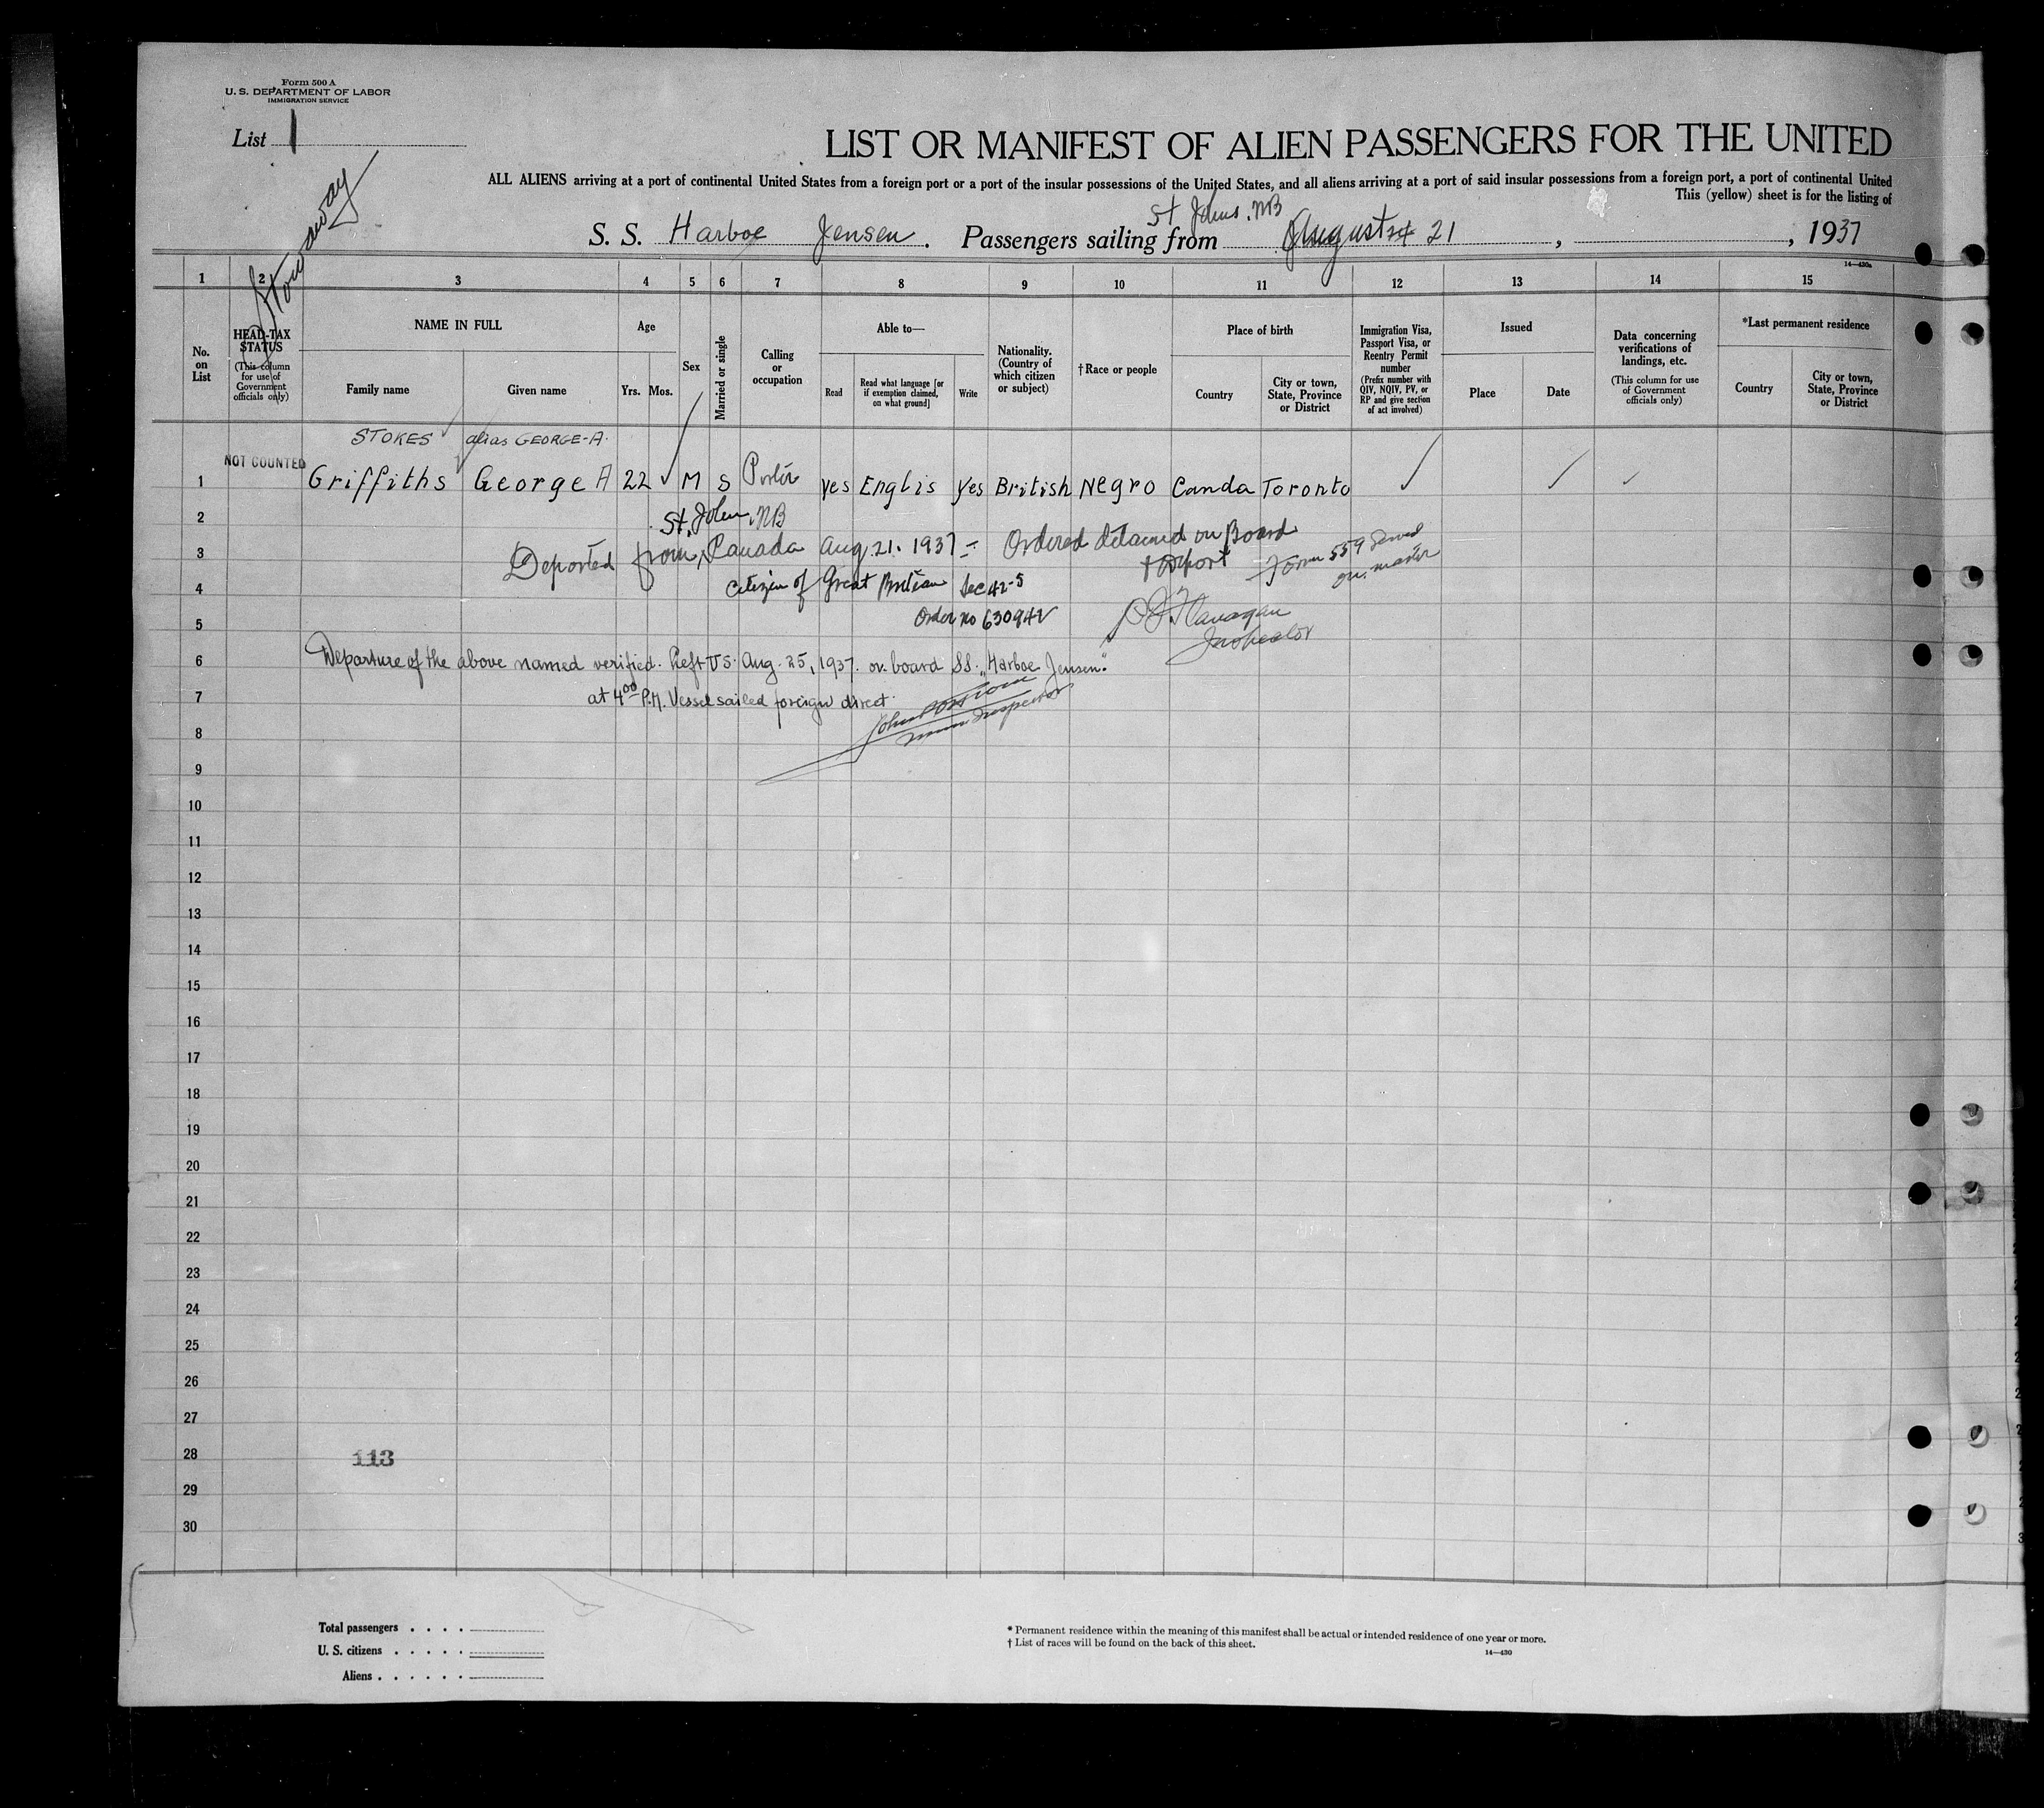 Form 500 A
U. S. DEPARTMENT OF LABOR
IMMIGRATION SERVICE
List 1
Stowaway
LIST OR MANIFEST OF ALIEN PASSENGERS FOR THE UNITED
ALL ALIENS arriving at a port of continental United States from a foreign port or a port of the insular possessions of the United States, and all aliens arriving at a port of said insular possessions from a foreign port, a port of continental United
This (yellow) sheet is for the listing of
St Johns, NB
S. S. Harboe Jensen. Passengers sailing from August 21, , 1937
14—430a
1 2 3 4 5 6 7 8 9 10 11 12 13 14 15
No. on List
HEAD-TAX STATUS
(This column for use of Government officials only)
NAME IN FULL
Family name
Given name
Age
Yrs. Mos.
Sex
Married or single
Calling or occupation
Able to—
Read
Read what language [or if exemption claimed, on what ground]
Write
Nationality. (Country of which citizen or subject)
†Race or people
Place of birth
Country
City or town, State, Province or District
Immigration Visa, Passport Visa, or Reentry Permit number
(Prefix number with QIV, NQIV, PV, or RP and give section of act involved)
Issued
Place
Date
Data concerning verifications of landings, etc.
(This column for use of Government officials only)
*Last permanent residence
Country
City or town, State, Province or District
STOKES alias GEORGE-A.
NOT COUNTED
1 Griffiths George A 22 M S Porter yes Englis yes British Negro Canda Toronto
2 St. John, NB
3 Deported from, Canada Aug. 21. 1937 - Ordered detained on Board
+ deport Form 559 served on master
4 Citizen of Great Britian Sec 42-5
5 Order no 630942
Flanagan
Inspector
6 Departure of the above named verified. Left U.S. Aug. 25, 1937. on board S.S. "Harboe Jensen."
7 at 4⁰⁰ P.M. Vessel sailed foreign direct.
Inspector
8
9
10
11
12
13
14
15
16
17
18
19
20
21
22
23
24
25
26
27
28 113
29
30
Total passengers . . . .
U. S. citizens . . . . .
Aliens . . . . . .
* Permanent residence within the meaning of this manifest shall be actual or intended residence of one year or more.
† List of races will be found on the back of this sheet.
14—430